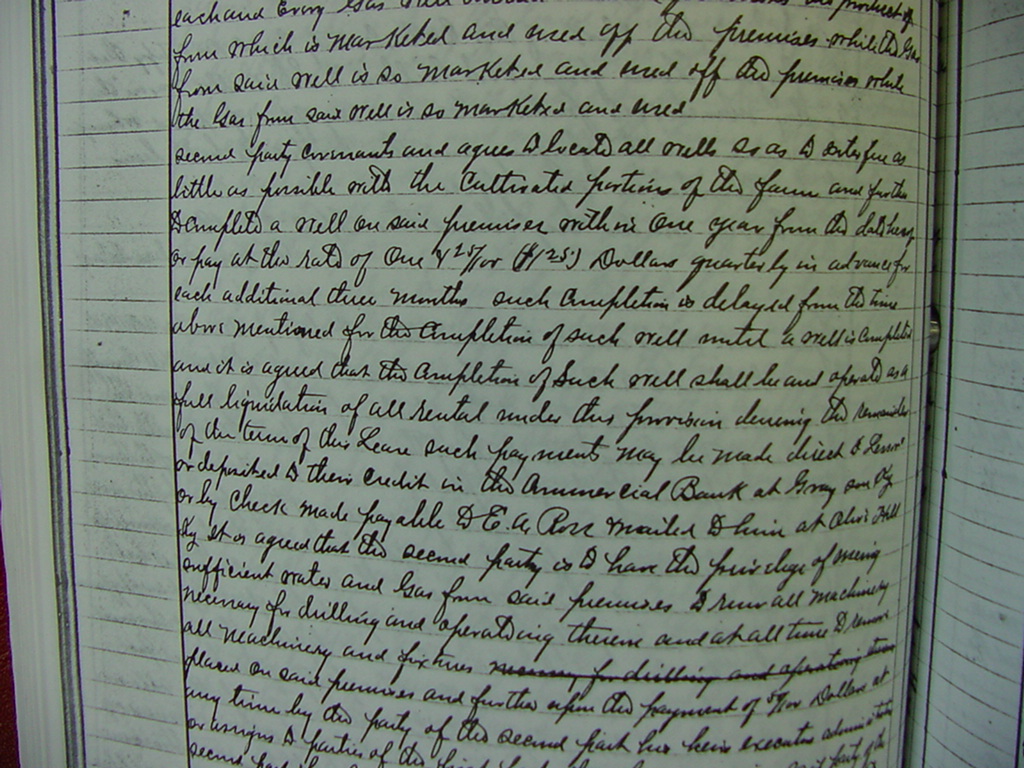 each and Every Gas well product of
from which is marketed and used off the premises while the Gas
from said well is so marketed and used off the premises while
the Gas from said well is so marketed and used
second party covenants and agrees to locate all wells so as to interfere as
little as possible with the cultivated portions of the farm and further
to complete a well on said premises within one year from the date hereof
or pay at the rate of One & 25/100 ($1.25) Dollars quarterly in advance for
each additional three months such completion is delayed from the time
above mentioned for the completion of such well until a well is completed
and it is agreed that the completion of such well shall be and operate as a
full liquidation of all rental under this provision during the remainder
of the term of this Lease such payments may be made direct to Lessor
or deposited to their credit in the Commercial Bank at Grayson Ky
or by check made payable to E. A. Rose mailed to him at Olive Hill
Ky It is agreed that the second party is to have the privilege of using
sufficient water and Gas from said premises to run all machinery
necessary for drilling and operating thereon and at all time to remove
all machinery and fixtures necessary for drilling and operating thereon
placed on said premises and further upon the payment of Dollars at
any time by the party of the second part his heirs executors administrators
or assigns to parties of the first part
second part party of the